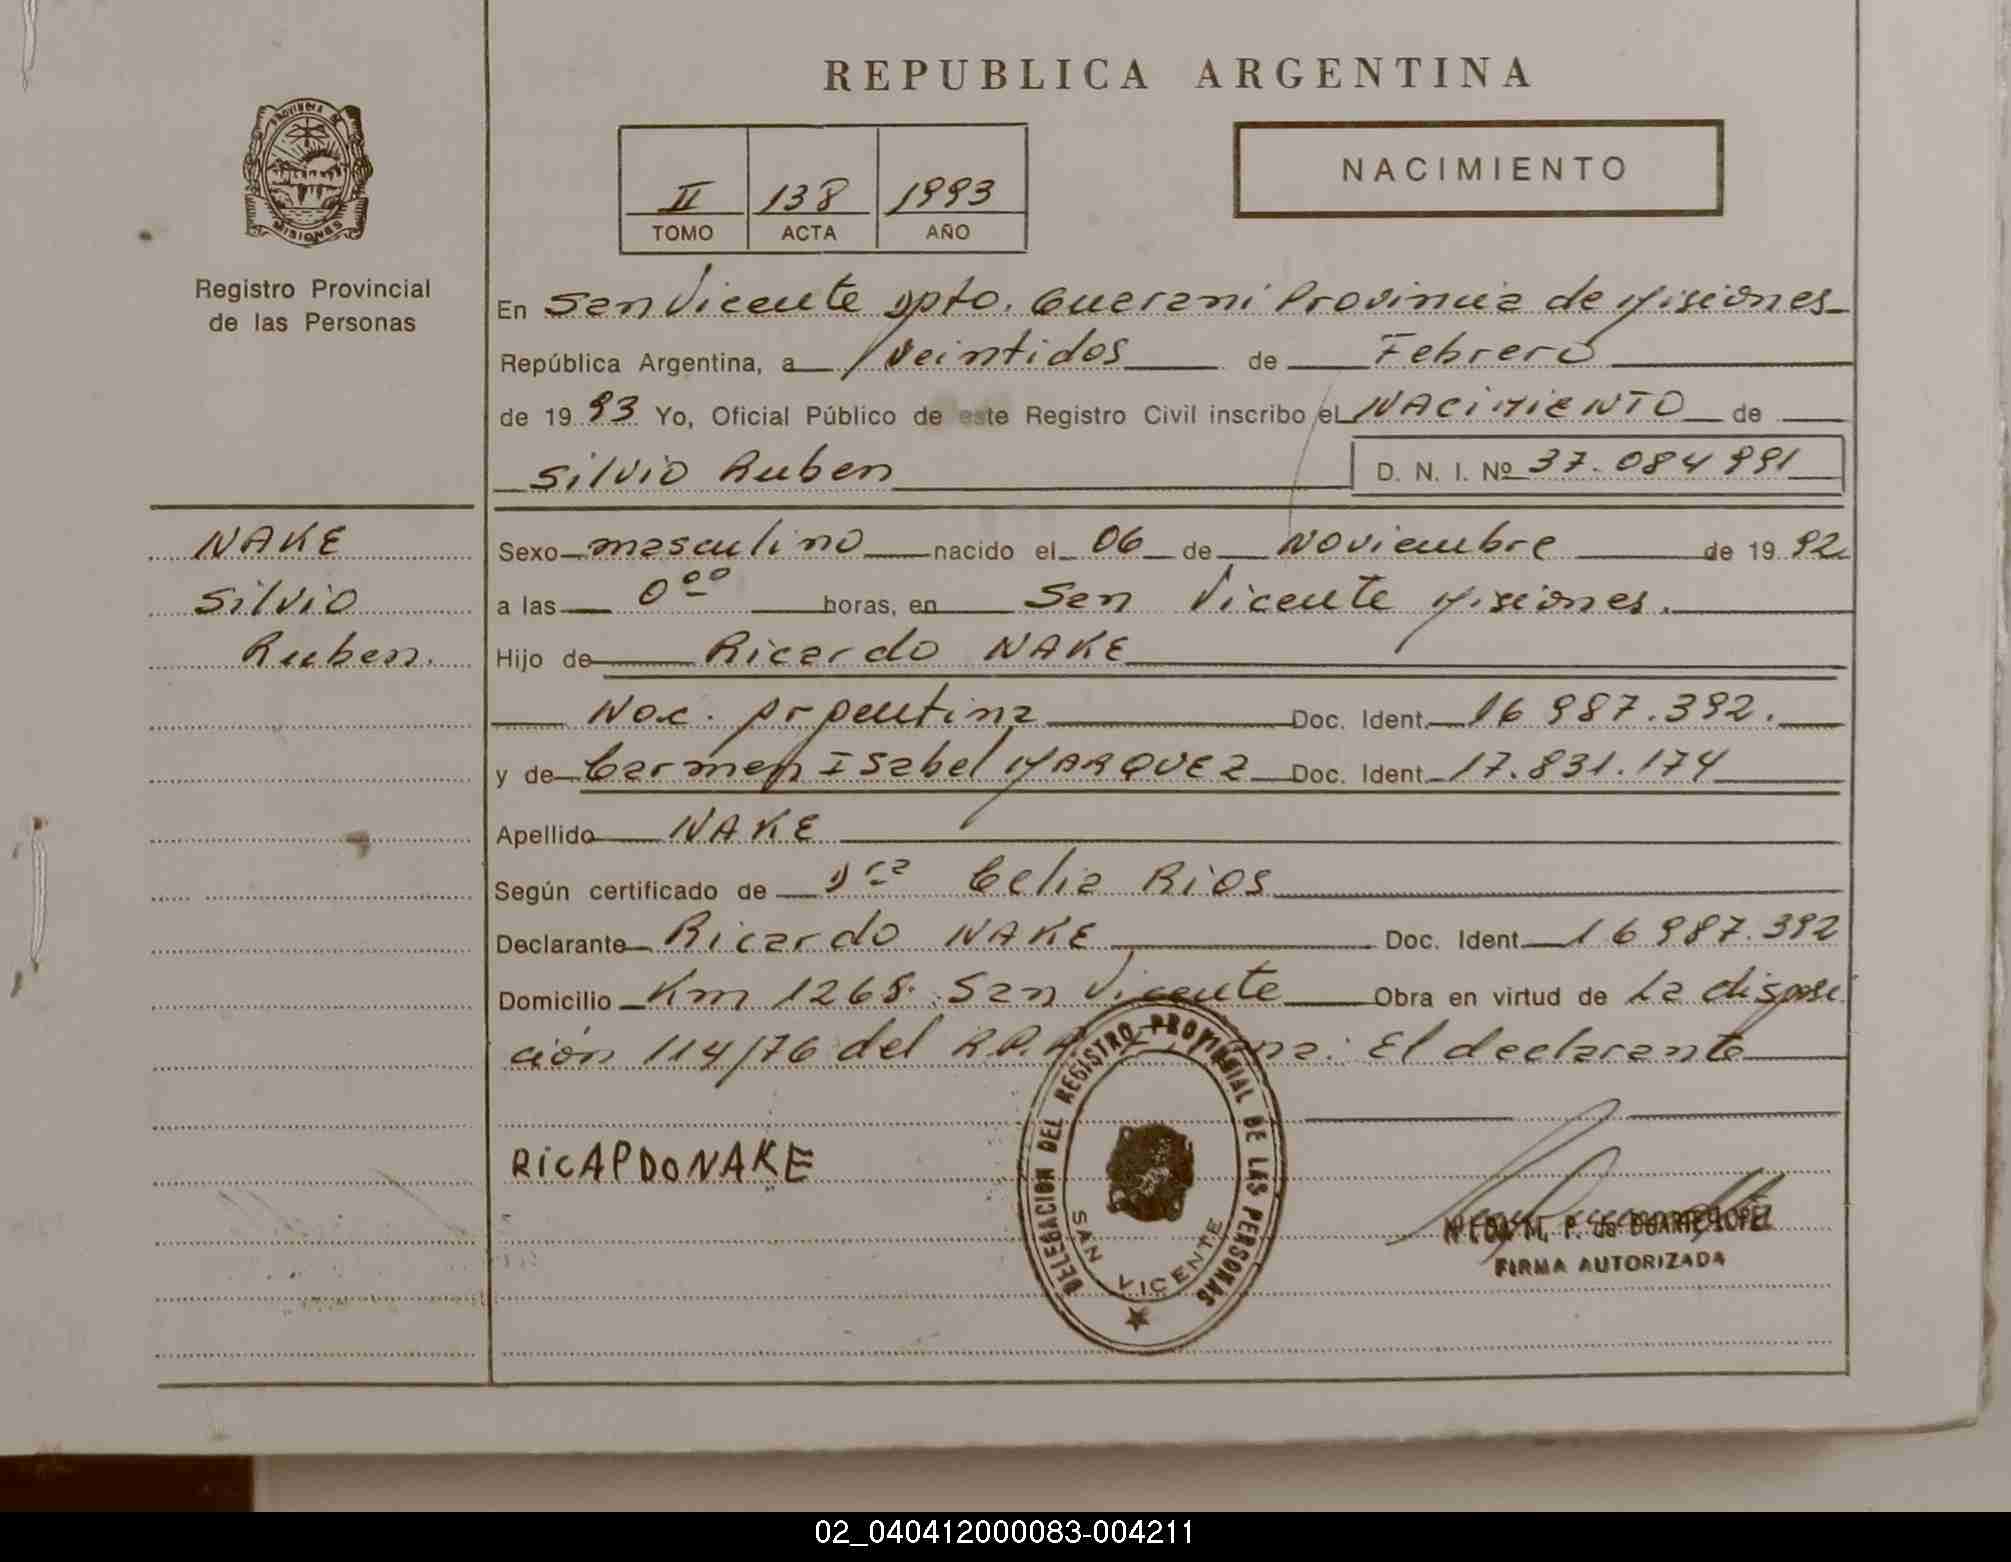 REPUBLICA ARGENTINA
PROVINCIA DE
MISIONES
Registro Provincial
de las Personas
II 138 1993
TOMO ACTA AÑO
NACIMIENTO
En San Vicente Dpto. Guarani Provincia de Misiones
República Argentina, a veintidos de Febrero
de 1993 Yo, Oficial Público de este Registro Civil inscribo el NACIMIENTO de
Silvio Ruben D. N. I. Nº 37.084 991
NAKE
Silvio
Ruben.
Sexo masculino nacido el 06 de Noviembre de 1992
a las 0⁰⁰ horas, en San Vicente Misiones.
Hijo de Ricardo NAKE
Nac. Argentina Doc. Ident. 16 987.392.
y de Carmen Isabel MARQUEZ Doc. Ident. 17.831.174
Apellido NAKE
Según certificado de Dra Celia Rios
Declarante Ricardo NAKE Doc. Ident. 16 987.392
Domicilio Km 1268. San Vicente Obra en virtud de La disposi
ción 114/76 del El declarante
RiCAPDO NAKE
DELEGACION DEL REGISTRO PROVINCIAL DE LAS PERSONAS
SAN VICENTE
M. P. de DUARTE LOPEZ
FIRMA AUTORIZADA
02_040412000083-004211